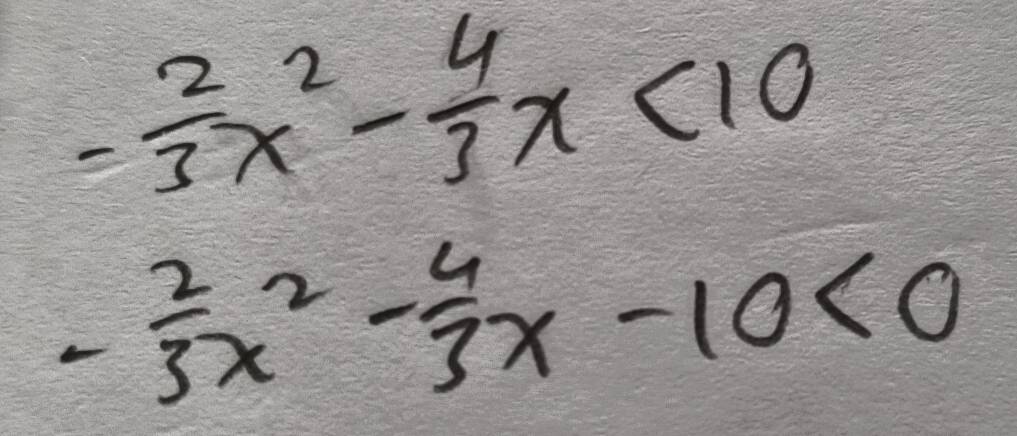 -2/3x² - 4/3x < 10
-2/3x² - 4/3x - 10 < 0